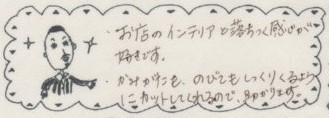 ・お店のインテリアと落ちつく感じが
好きです。
・かみがたも、のびてもしっくりくるよう
にカットしてくれるので、助かります。